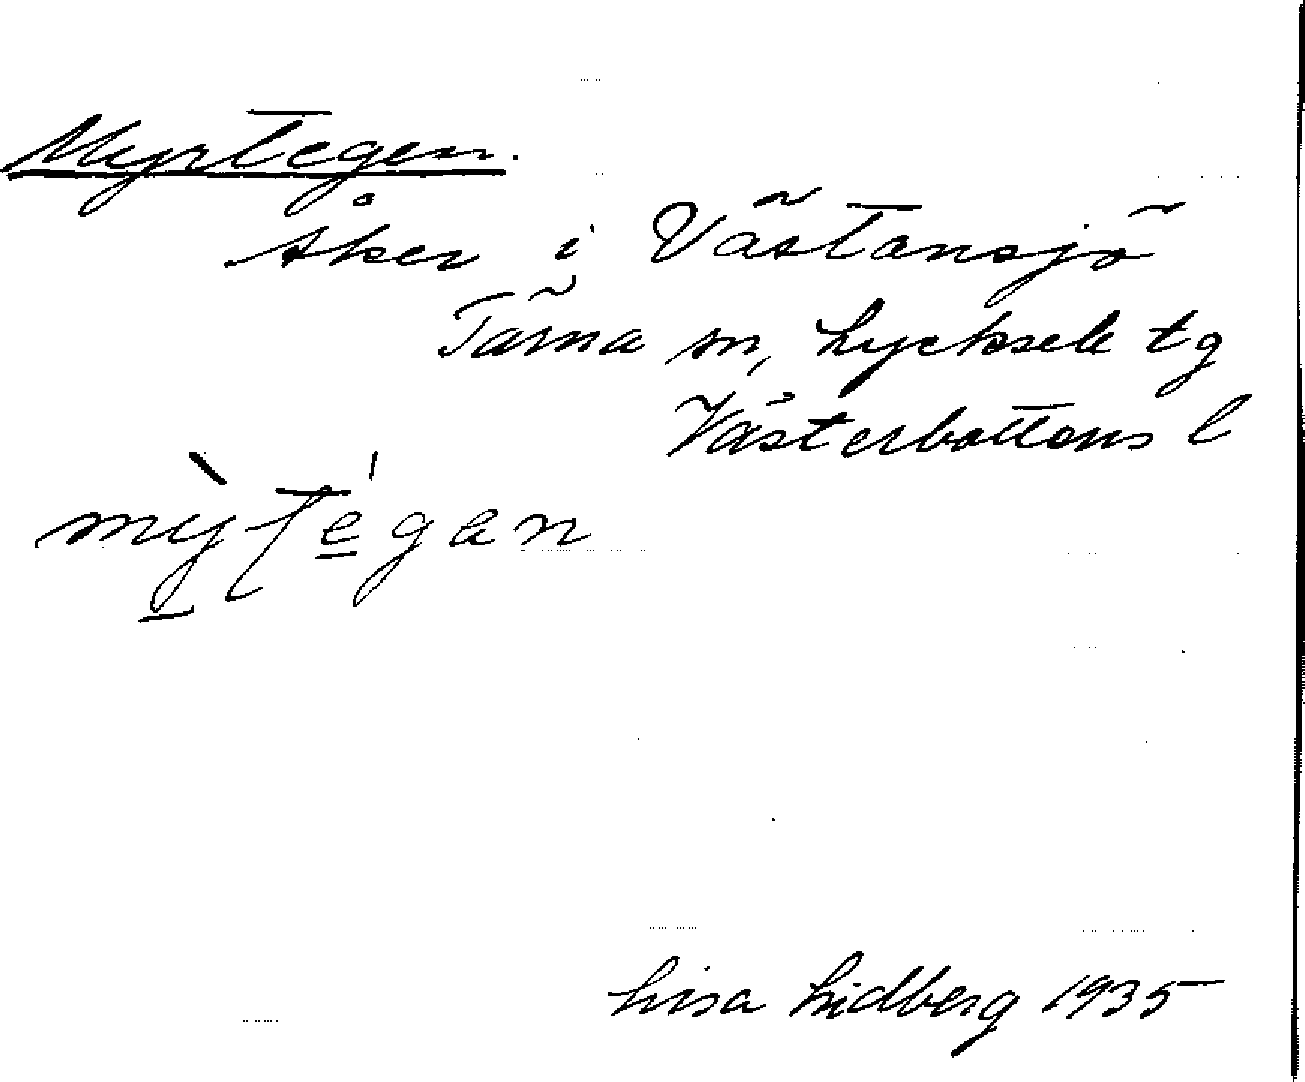 Myrtegen.
Åker i Västansjö
Tärna sn, Lycksele tg
Västerbottens l
Lisa Lidberg 1935